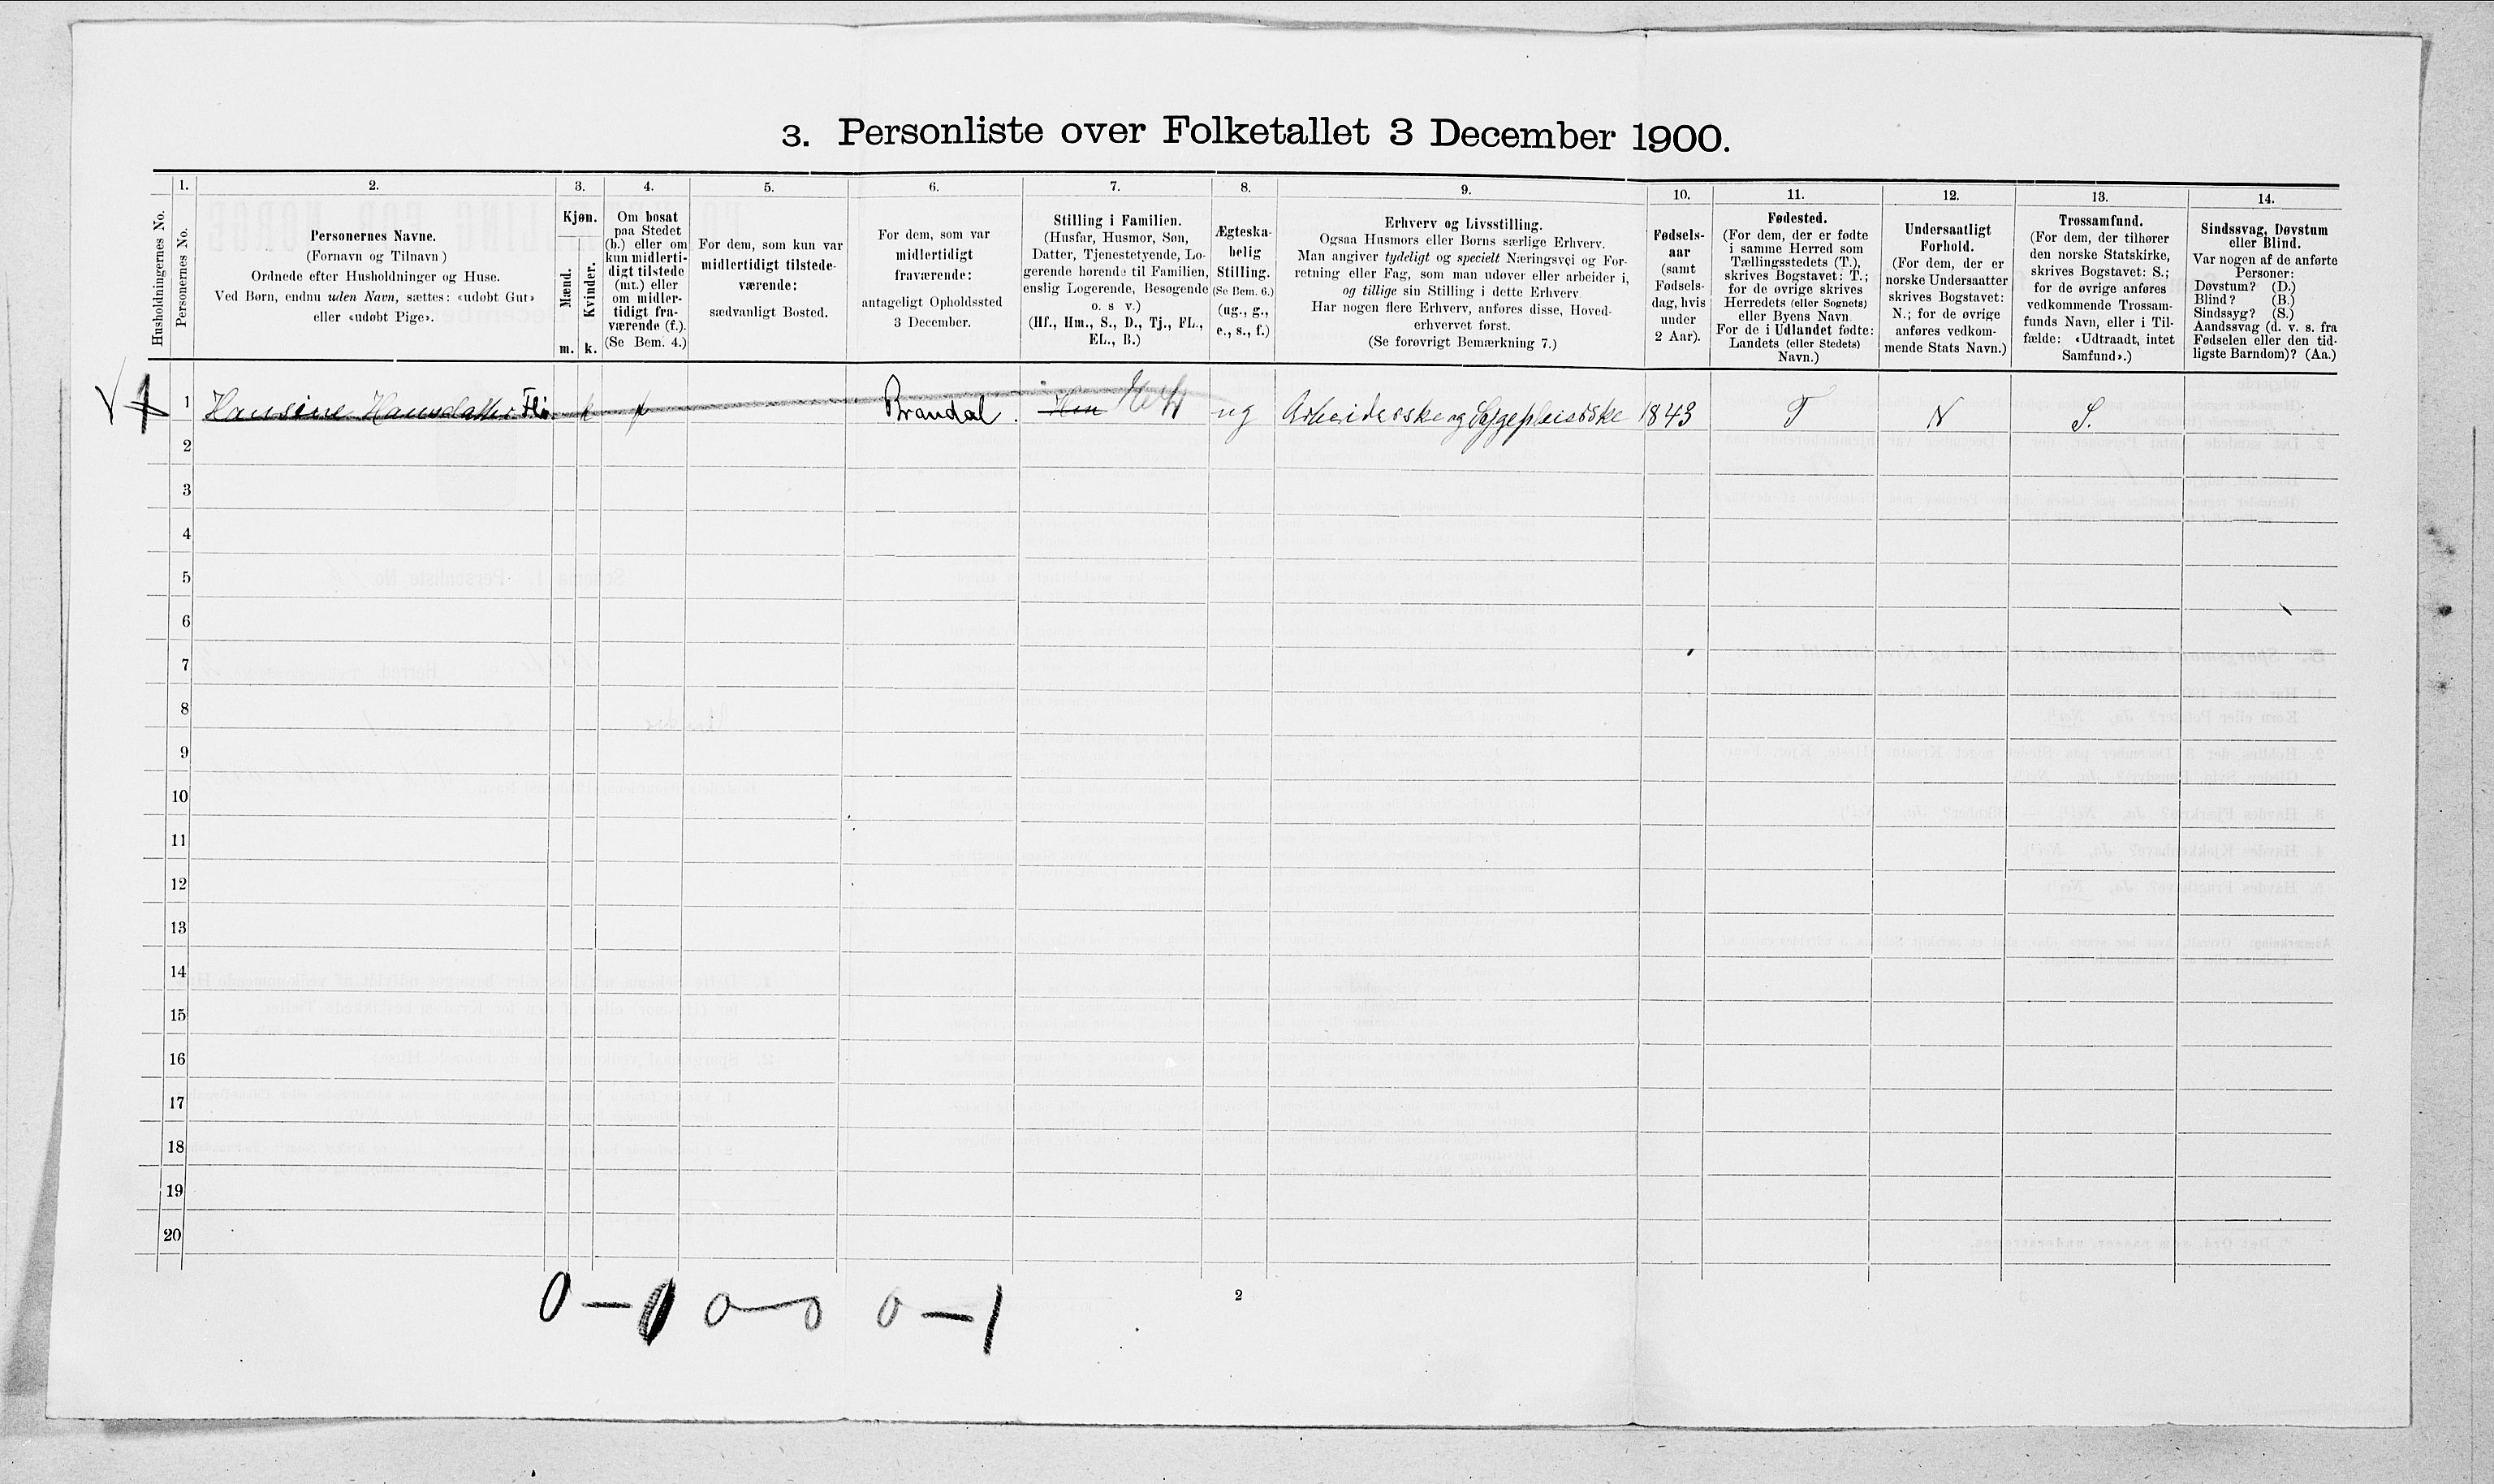 3. Personliste over Folketallet 3 December 1900.
Husholdningernes No.
1.
Personernes No.
2.
Personernes Navne.
(Fornavn og Tilnavn)
Ordnede efter Husholdninger og Huse.
Ved Børn, endnu uden Navn, sættes: «udøbt Gut»
eller «udøbt Pige».
3.
Kjøn.
Mænd.
Kvinder.
m. k.
4.
Om bosat
paa Stedet
(b.) eller om
kun midlerti-
digt tilstede
(mt.) eller
om midler-
tidigt fra-
værende (f.).
(Se Bem. 4.)
5.
For dem, som kun var
midlertidigt tilstede-
værende:
sædvanligt Bosted.
6.
For dem, som var
midlertidigt
fraværende:
antageligt Opholdssted
3 December.
7.
Stilling i Familien.
(Husfar, Husmor, Søn,
Datter, Tjenestetyende, Lo-
gerende hørende til Familien,
enslig Logerende, Besøgende
o. s v.)
(Hf., Hm., S., D., Tj., FL.,
EL., B.)
8.
Ægteska-
belig
Stilling.
(Se Bem. 6.)
(ug., g.,
e., s., f.)
9.
Erhverv og Livsstilling.
Ogsaa Husmors eller Børns særlige Erhverv.
Man angiver tydeligt og specielt Næringsvei og For-
retning eller Fag, som man udøver eller arbeider i,
og tillige sin Stilling i dette Erhverv.
Har nogen flere Erhverv, anføres disse, Hoved-
erhvervet først.
(Se forøvrigt Bemærkning 7.)
10.
Fødsels-
aar
(samt
Fødsels-
dag, hvis
under
2 Aar).
11.
Fødested.
(For dem, der er fødte
i samme Herred som
Tællingsstedets (T.),
skrives Bogstavet: T.;
for de øvrige skrives
Herredets (eller Sognets)
eller Byens Navn.
For de i Udlandet fødte:
Landets (eller Stedets)
Navn.)
12.
Undersaatligt
Forhold.
(For dem, der er
norske Undersaatter
skrives Bogstavet:
N.; for de øvrige
anføres vedkom-
mende Stats Navn.)
13.
Trossamfund.
(For dem, der tilhører
den norske Statskirke,
skrives Bogstavet: S.;
for de øvrige anføres
vedkommende Trossam-
funds Navn, eller i Til-
fælde: «Udtraadt, intet
Samfund».)
14.
Sindssvag, Døvstum
eller Blind.
Var nogen af de anførte
Personer:
Døvstum? (D.)
Blind? (B.)
Sindssyg? (S.)
Aandssvag (d. v. s. fra
Fødselen eller den tid-
ligste Barndom)? (Aa.)
1 Hansine Hansdatter Flø. k f Brandal. ug Arbeiderske og Sygepleierske 1843 T N S.
2
3
4
5
6
7
8
9
10
11
12
13
14
15
16
17
18
19
20
0—0 0—0 0—1
2